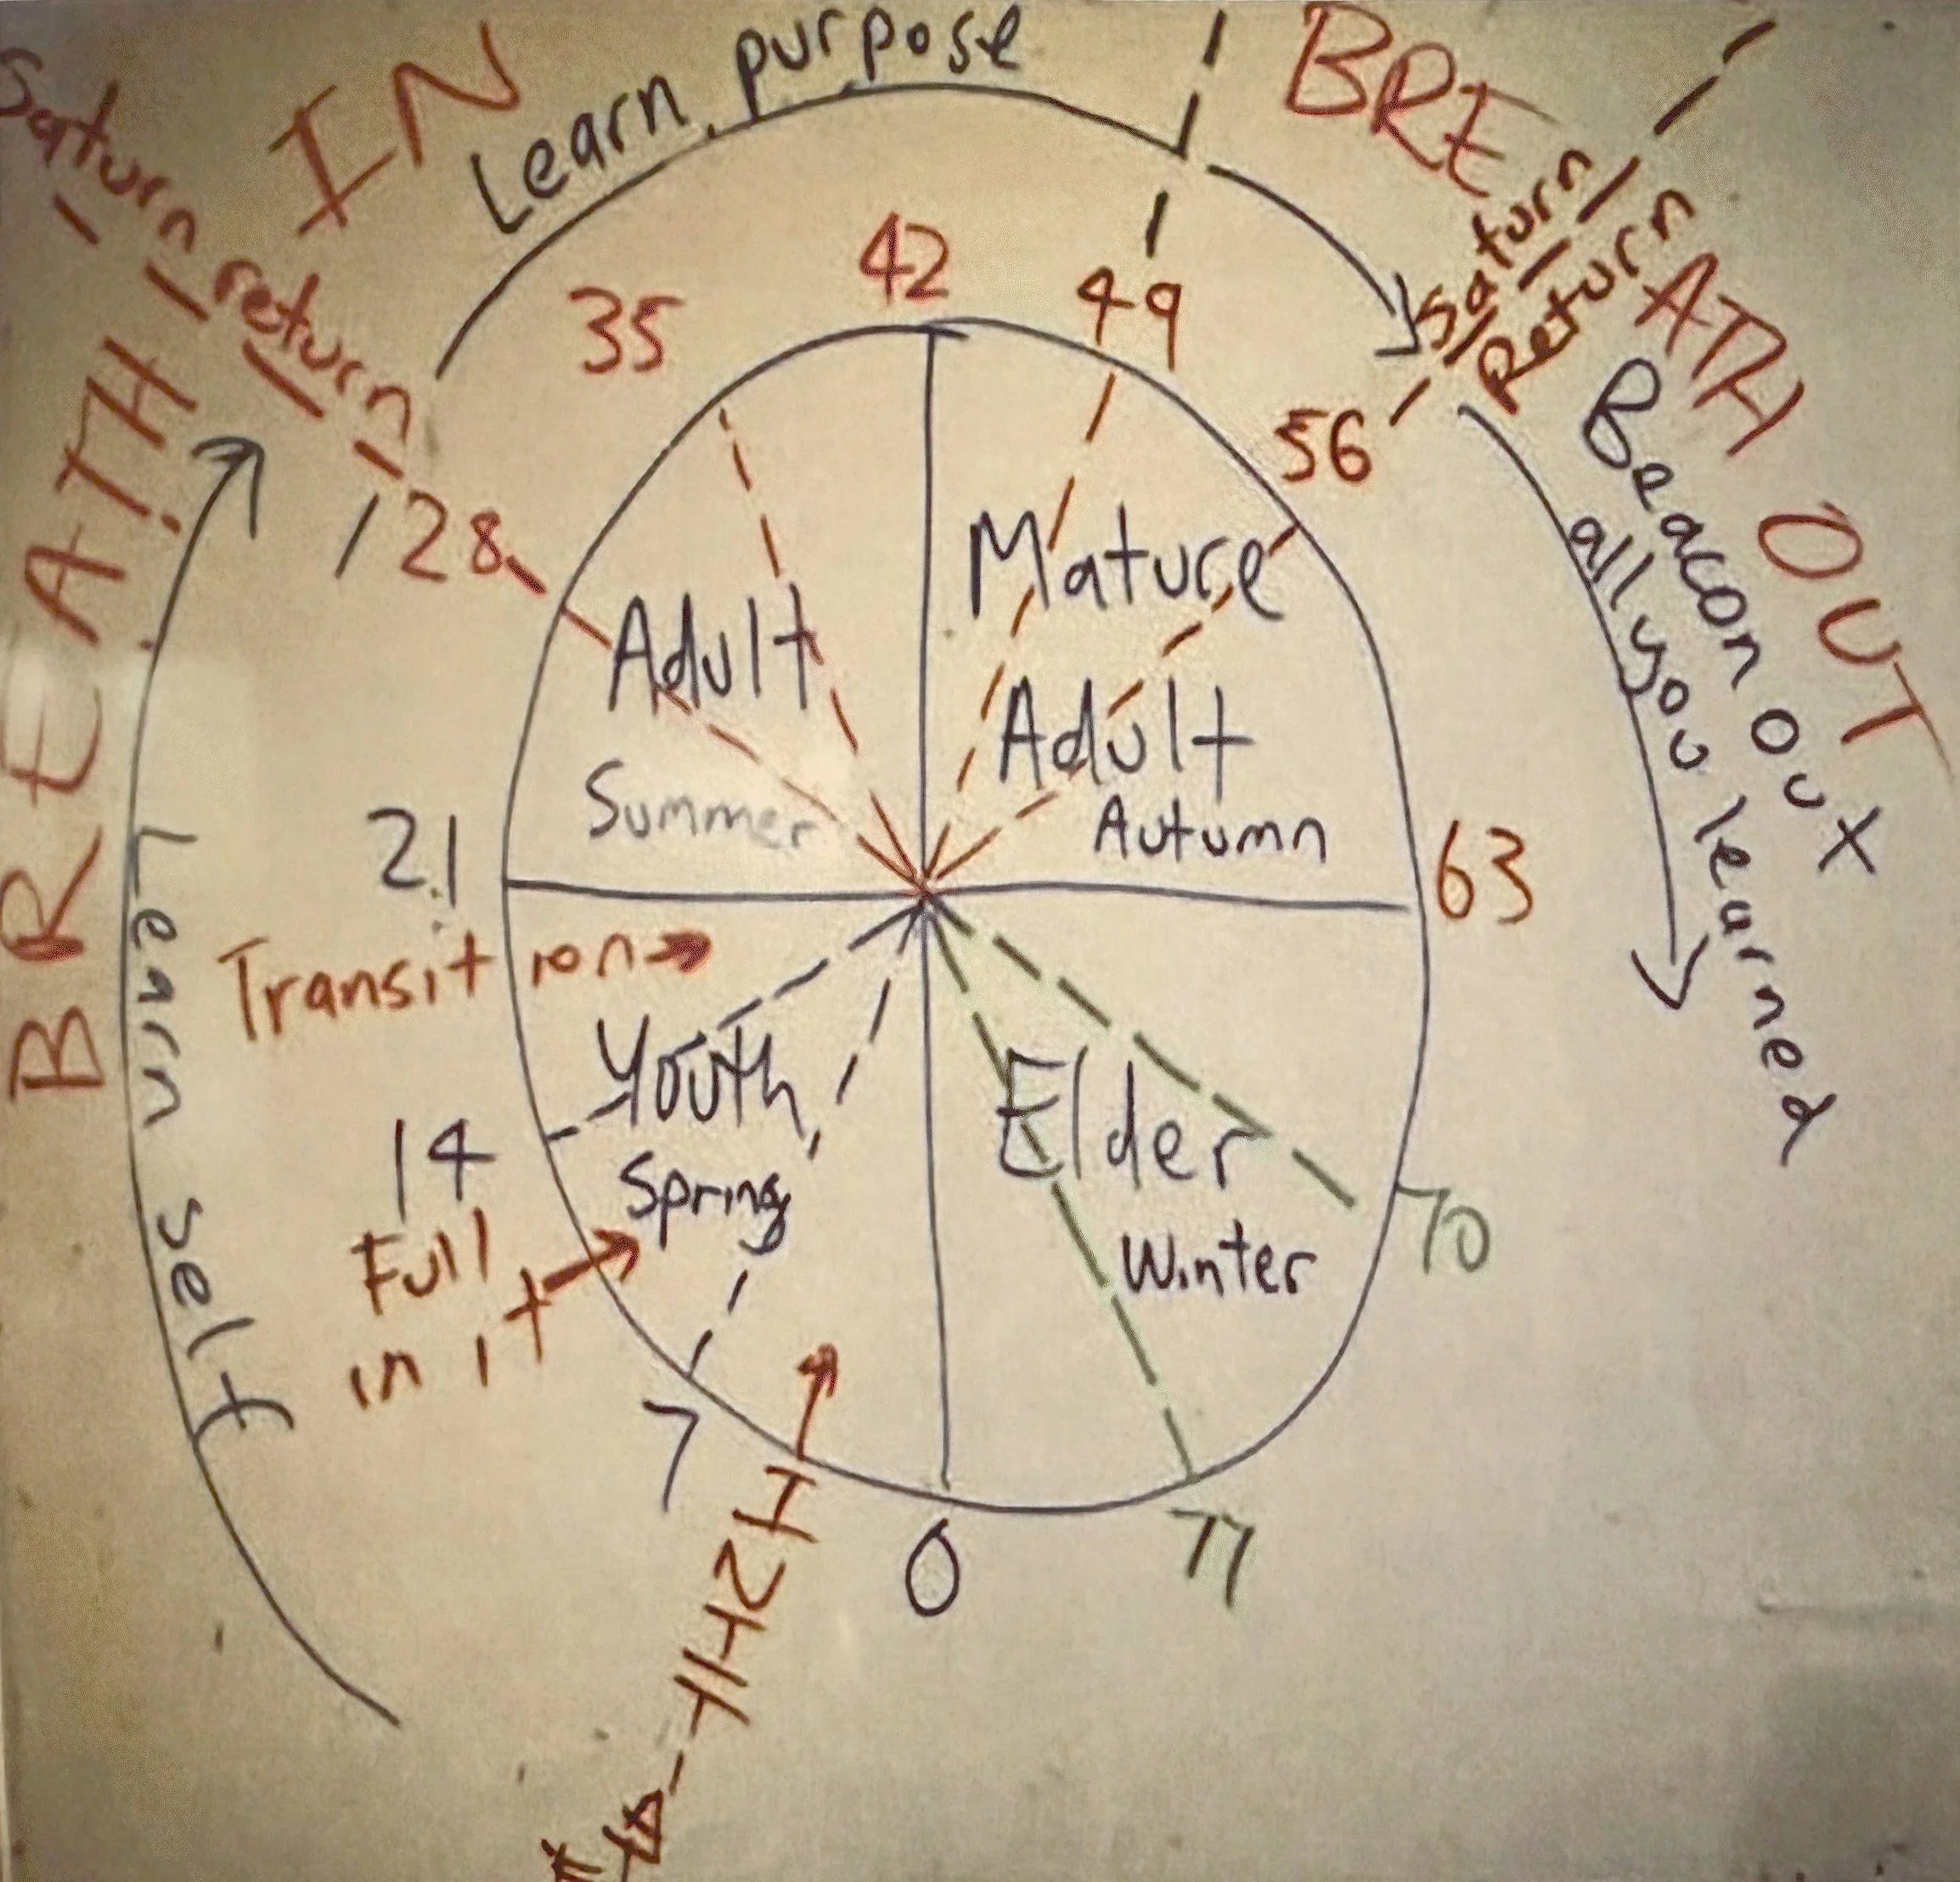 BREATH IN
Learn purpose
BREATH OUT
Saturn return
Saturn
Return
Beacon out
all you learned
Learn self
28
35
42
49
56
63
70
77
0
7
14
21
Adult
Summer
Mature
Adult
Autumn
Youth
Spring
Elder
Winter
Transition
Full
in it